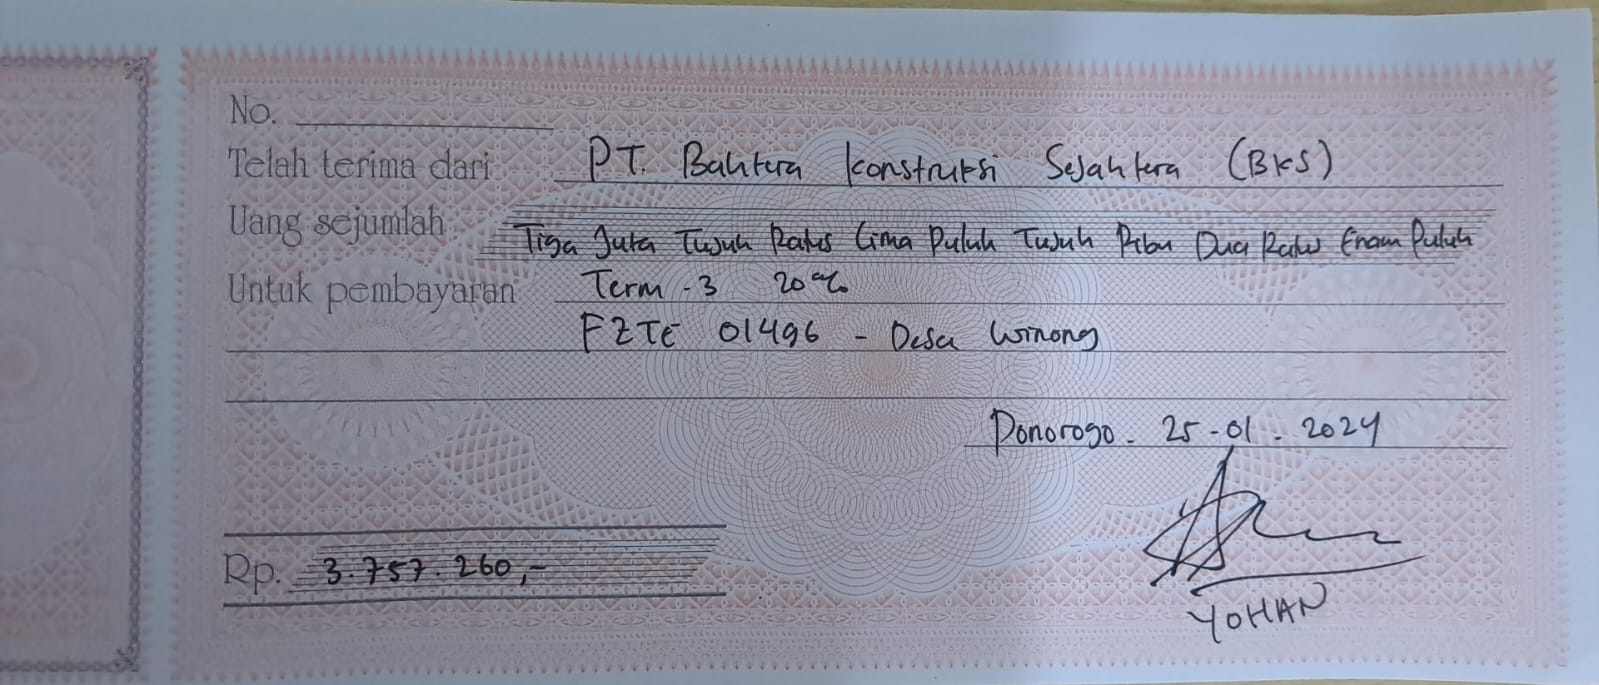 No.
Telah terima dari PT. Bahtera Konstruksi Sejahtera (BKS)
Uang sejumlah Tiga Juta Tujuh Ratus Lima Puluh Tujuh Ribu Dua Ratus Enam Puluh
Untuk pembayaran Term - 3 20%
FZTE 01496 - Desa Winong
Ponorogo - 25 - 01 - 2024
Rp. 3.757.260,-
YOHAN